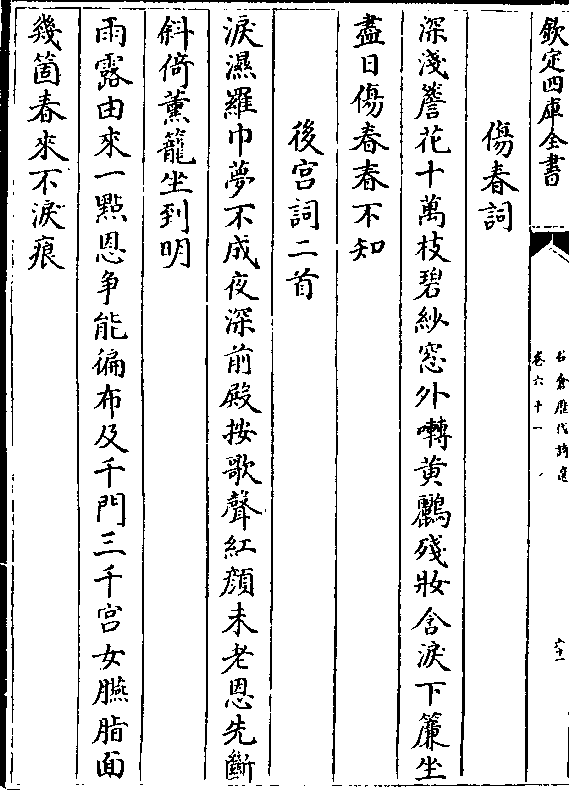 欽定四庫全書
石倉歷代詩選
卷六十一
傷春詞
深淺簷花十萬枝碧紗窓外囀黄鸝殘妝含淚下簾坐
盡日傷春春不知
後宫詞二首
淚濕羅巾夢不成夜深前殿按歌聲紅顔未老恩先斷
斜倚薰籠坐到明
雨露由來一點恩争能徧布及千門三千宫女臙脂面
幾箇春來不淚痕